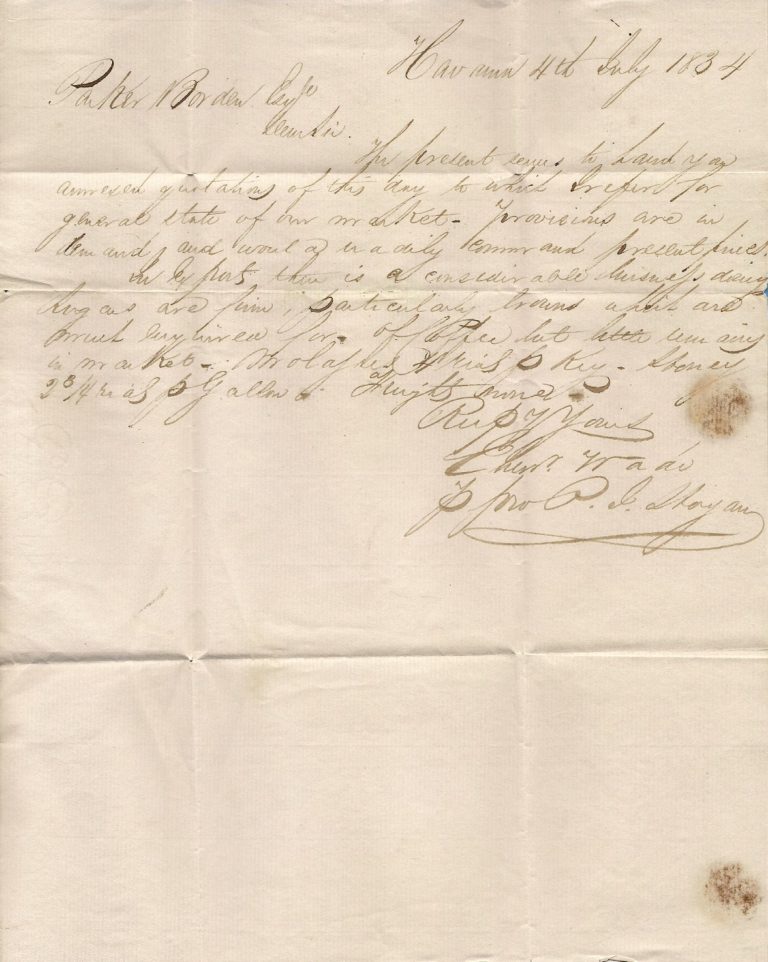 Havana 4th July 1834
Parker Borden Esqre
Dear Sir.
The present serves to hand you
annexed quotations of this day to which I refer for
general state of our market - Provisions are in
demand, and would readily command present prices.
In Exports there is a considerable business doing
Sugars are firm, particularly browns which are
much enquired for - Of Coffee but little remains
in market - Molasses 4 rials p Keg - Honey
2 3/4 rials p Gallon - Freights
Respy Yours
Wade
p pro P. J.